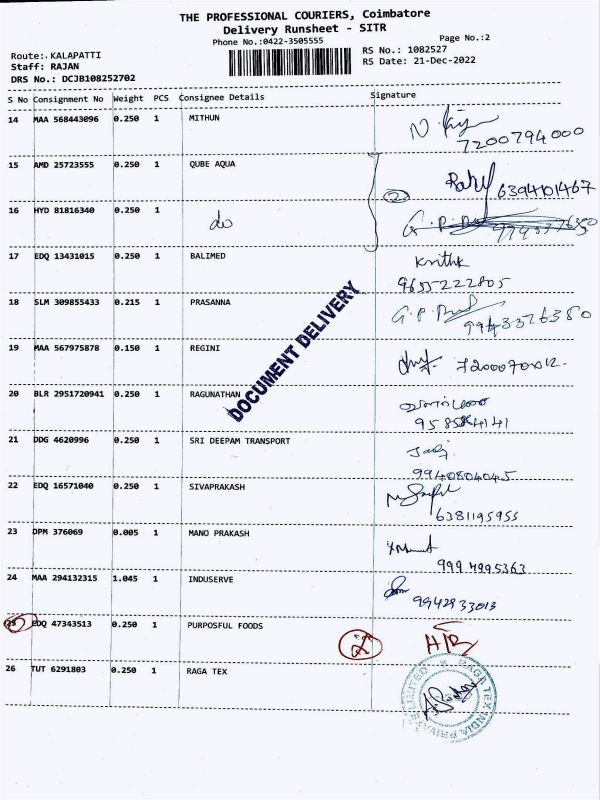 THE PROFESSIONAL COURIERS, Coimbatore
Delivery Runsheet - SITR
Page No.:2
Phone No.:0422-3505555
Route:.KALAPATTI
RS No.: 1082527
Staff: RAJAN
RS Date: 21-Dec-2022
DRS No.: DCJB108252702
S No Consignment No Weight PCS Consignee Details Signature
14 MAA 568443096 0.250 1 MITHUN
7200794000
15 AMD 25723555 0.250 1 QUBE AQUA
Rahul 6394101467
2
16 HYD 81816340 0.250 1 do
17 EDQ 13431015 0.250 1 BALIMED
Krithk
9655222805
18 SLM 309855433 0.215 1 PRASANNA
9943376380
19 MAA 567975878 0.150 1 REGINI
7200070012.
DOCUMENT DELIVERY
20 BLR 2951720941 0.250 1 RAGUNATHAN
21 DDG 4620996 0.250 1 SRI DEEPAM TRANSPORT
9940804045
22 EDQ 16571040 0.250 1 SIVAPRAKASH
6381195955
23 DPM 376069 0.005 1 MANO PRAKASH
9994995363
24 MAA 294132315 1.045 1 INDUSERVE
9942933013
25 EDQ 47343513 0.250 1 PURPOSFUL FOODS
26 TUT 6291803 0.250 1 RAGA TEX
RAGA TEX INDIA PRIVATE LIMITED